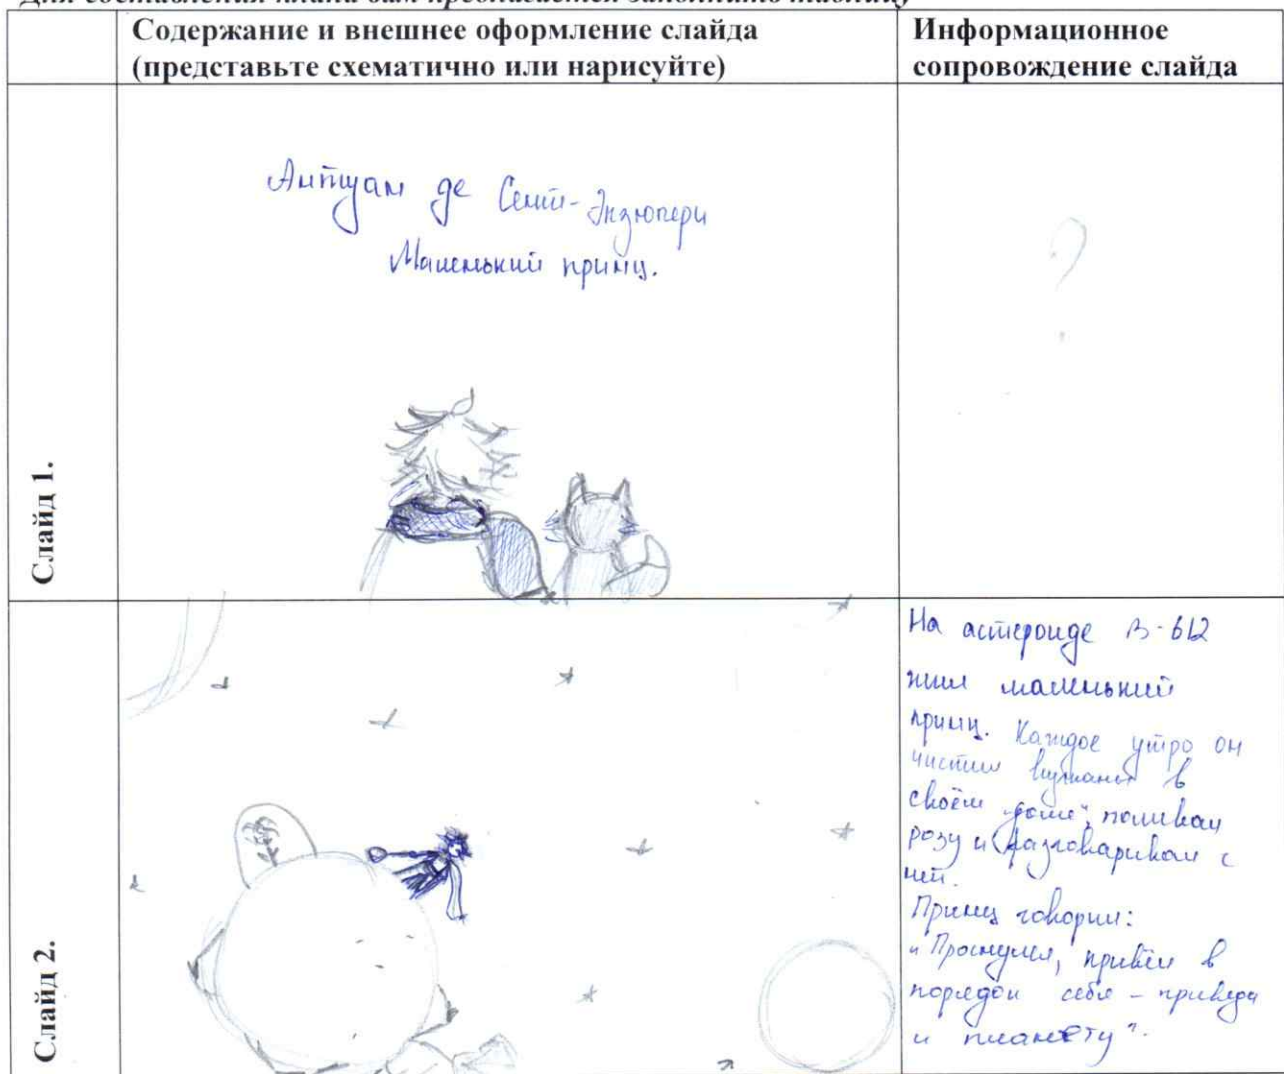 Для составления плана вам предлагается заполнить таблицу
Содержание и внешнее оформление слайда
(представьте схематично или нарисуйте)
Информационное
сопровождение слайда
Слайд 1.
Антуан де Сент-Экзюпери
Маленький принц.
?
Слайд 2.
На астероиде В-612
жил маленький
принц. Каждое утро он
чистил вулканы в
своём „доме", поливал
розу и разговаривал с
ней.
Принц говорил:
„Проснулся, привёл в
порядок себя – приведи
и планету".